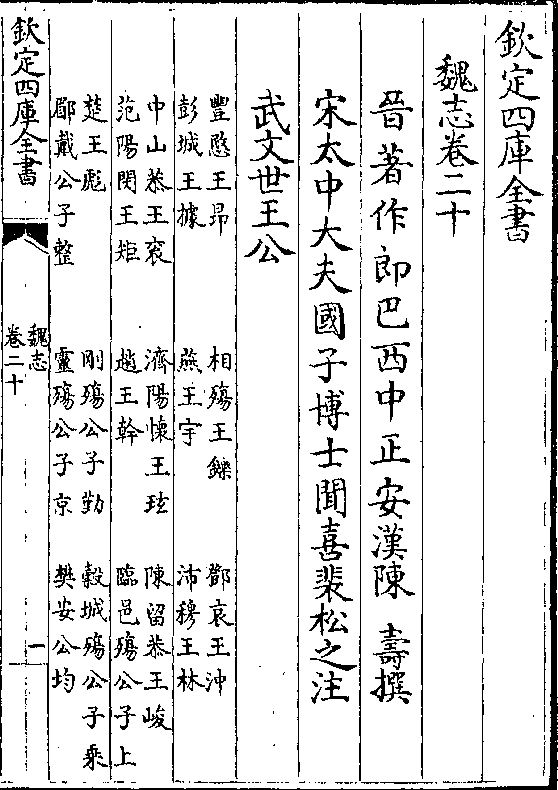 欽定四庫全書
魏志卷二十
晉著作郎巴西中正安漢陳　壽撰
宋太中大夫國子博士聞喜裴松之注
武文世王公
豐愍王昂　相殤王鑠　鄧哀王沖
彭城王據　燕王宇　沛穆王林
中山恭王袞　濟陽懷王玹　陳留恭王峻
范陽閔王矩　趙王幹　臨邑殤公子上
楚王彪　剛殤公子勤　榖城殤公子乘
郿戴公子整　靈殤公子京　樊安公均
欽定四庫全書
魏志
卷二十
一